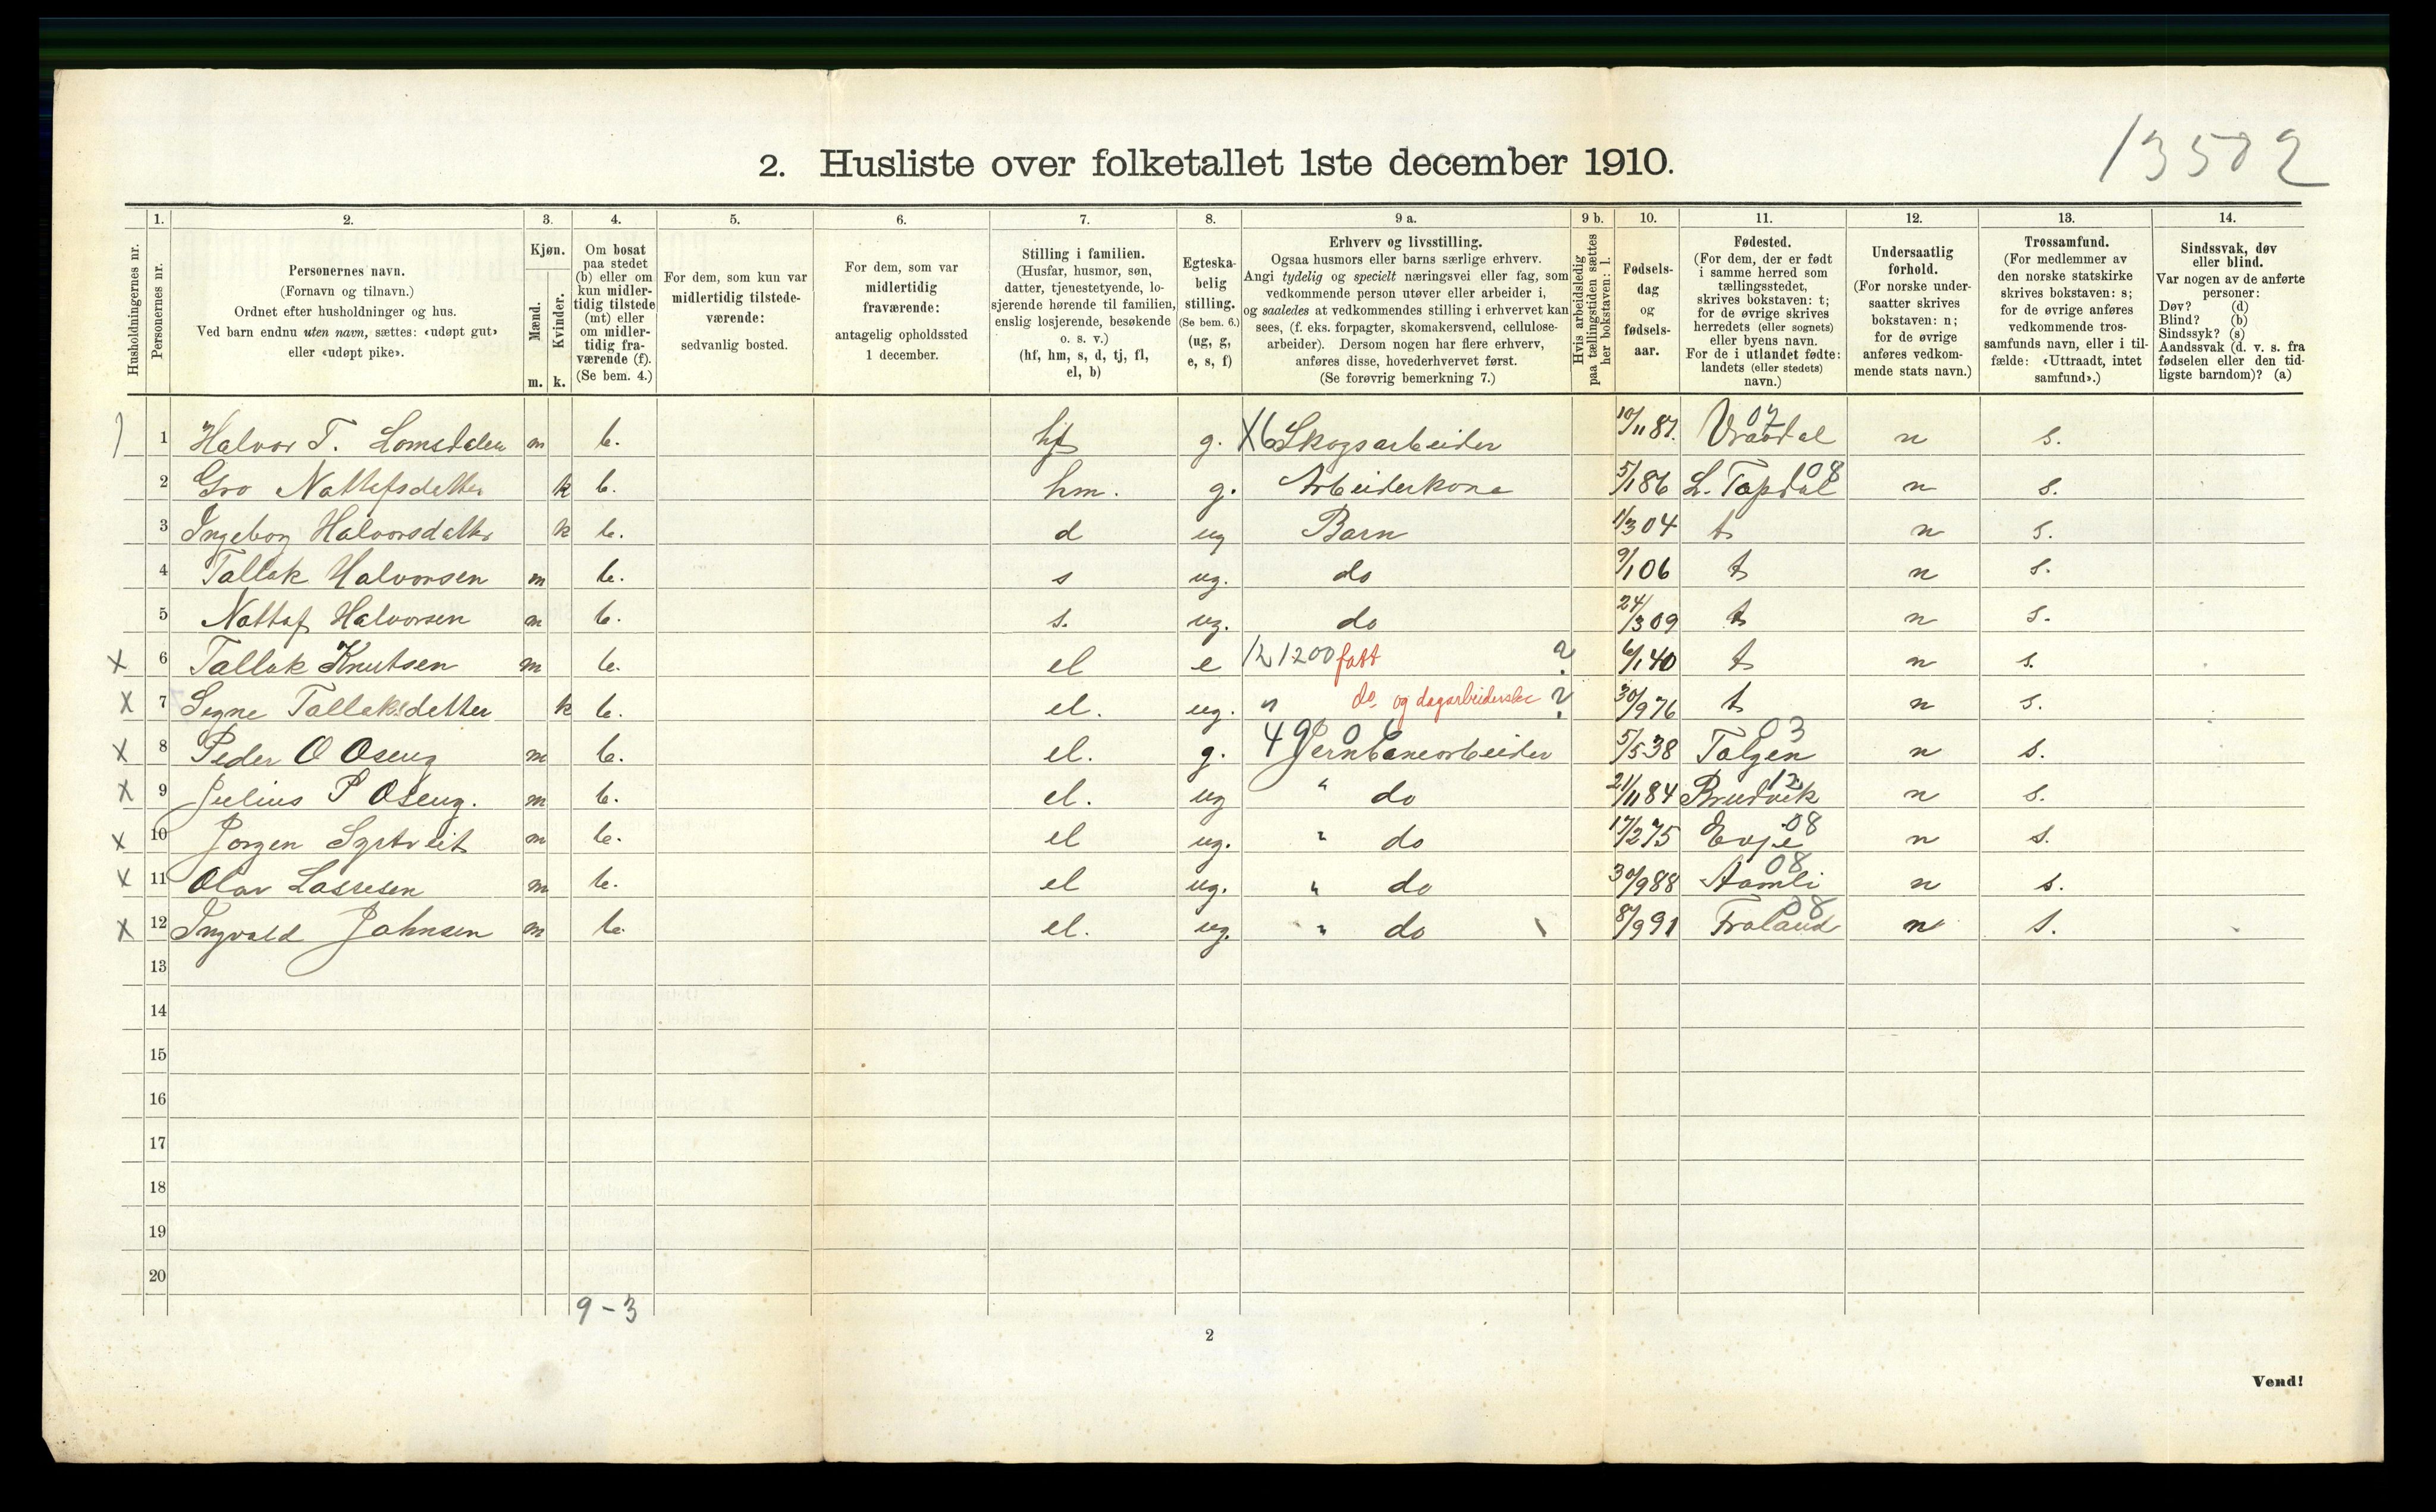 13502
2. Husliste over folketallet 1ste december 1910.
1. 2. 3. 4. 5. 6. 7. 8. 9 a. 9 b. 10. 11. 12. 13. 14.
Husholdningernes nr.
Personernes nr.
Personernes navn.
(Fornavn og tilnavn.)
Ordnet efter husholdninger og hus.
Ved barn endnu uten navn, sættes: «udøpt gut»
eller «udøpt pike».
Kjøn.
Mænd.
Kvinder.
m. k.
Om bosat
paa stedet
(b) eller om
kun midler-
tidig tilstede
(mt) eller
om midler-
tidig fra-
værende (f).
(Se bem. 4.)
For dem, som kun var
midlertidig tilstede-
værende:
sedvanlig bosted.
For dem, som var
midlertidig
fraværende:
antagelig opholdssted
1 december.
Stilling i familien.
(Husfar, husmor, søn,
datter, tjenestetyende, lo-
sjerende hørende til familien,
enslig losjerende, besøkende
o. s. v.)
(hf, hm, s, d, tj, fl,
el, b)
Egteska-
belig
stilling.
(Se bem. 6.)
(ug, g,
e, s, f)
Erhverv og livsstilling.
Ogsaa husmors eller barns særlige erhverv.
Angi tydelig og specielt næringsvei eller fag, som
vedkommende person utøver eller arbeider i,
og saaledes at vedkommendes stilling i erhvervet kan
sees, (f. eks. forpagter, skomakersvend, cellulose-
arbeider). Dersom nogen har flere erhverv,
anføres disse, hovederhvervet først.
(Se forøvrig bemerkning 7.)
Hvis arbeidsledig
paa tællingstiden sættes
her bokstaven: l.
Fødsels-
dag
og
fødsels-
aar.
Fødested.
(For dem, der er født
i samme herred som
tællingsstedet,
skrives bokstaven: t;
for de øvrige skrives
herredets (eller sognets)
eller byens navn.
For de i utlandet fødte:
landets (eller stedets)
navn.)
Undersaatlig
forhold.
(For norske under-
saatter skrives
bokstaven: n;
for de øvrige
anføres vedkom-
mende stats navn.)
Trossamfund.
(For medlemmer av
den norske statskirke
skrives bokstaven: s;
for de øvrige anføres
vedkommende tros-
samfunds navn, eller i til-
fælde: «Uttraadt, intet
samfund».)
Sindssvak, døv
eller blind.
Var nogen av de anførte
personer:
Døv? (d)
Blind? (b)
Sindssyk? (s)
Aandssvak (d. v. s. fra
fødselen eller den tid-
ligste barndom)? (a)
1 Halvor T. Lomsdalen m b. hf g. X6 Skogsarbeider 10/11 87. Vraadal 07 n s.
2 Gro Nattefsdatter k b. hm. g. Arbeiderkone 5/1 86 L. Topdal 08 n s.
3 Ingebog Halvorsdatter k b. d ug Barn 1/3 04 t n s.
4 Tallak Halvorsen m b. s ug. do 9/1 06 t n s.
5 Nattaf Halvorsen m b. s. ug. do 24/3 09 t n s.
X 6 Tallak Knutsen m b. el e 12 1200 fatt ? 6/1 40 t n s.
X 7 Segne Tallaksdatter k b. el. ug. " do. og dagarbeiderske ? 30/9 76 t n s.
X 8 Peder O Oseug m b. el. g. 4906 Jernbanearbeider 5/5 38 Tolgen 03 n s.
X 9 Julius P Oseug. m b. el. ug " do 21/11 84 Brudvik 12 n s.
X 10 Jorgen Systveit m b. el ug. " do 17/2 75 Evje 08 n s.
X 11 Olav Lassesen m b. el ug. " do 30/9 88 Aamli 08 n s.
X 12 Ingvald Johnsen m b. el. ug. " do 8/9 91 Froland 08 n s.
13
14
15
16
17
18
19
20
9-3
2
Vend!